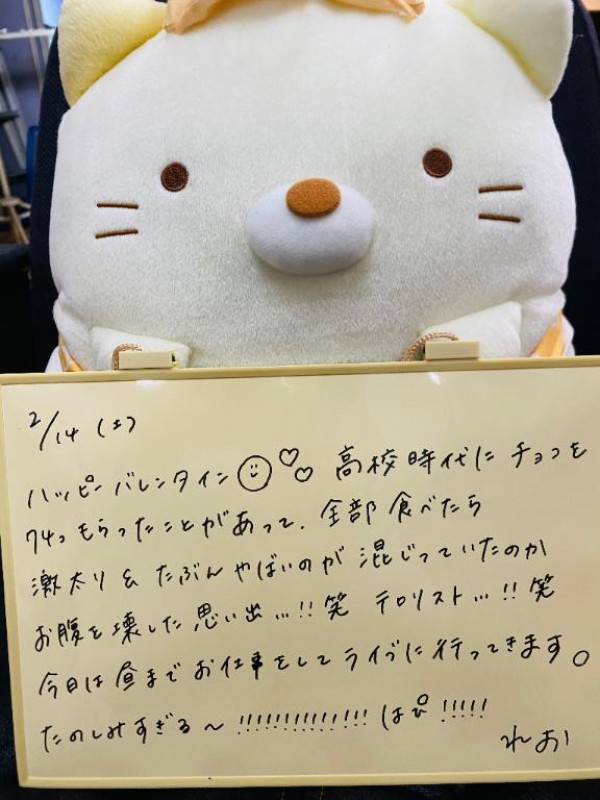 2/14 (土)
ハッピーバレンタイン 高校時代にチョコを
74つもらったことがあって、全部食べたら
激太り& たぶんやばいのが混じっていたのか
お腹を壊した思い出…!! 笑 テロリスト…!! 笑
今日は昼までお仕事をしてライブに行ってきます。
たのしみすぎる〜 !!!!!!!!!!!!! はぴ !!!!!
れお